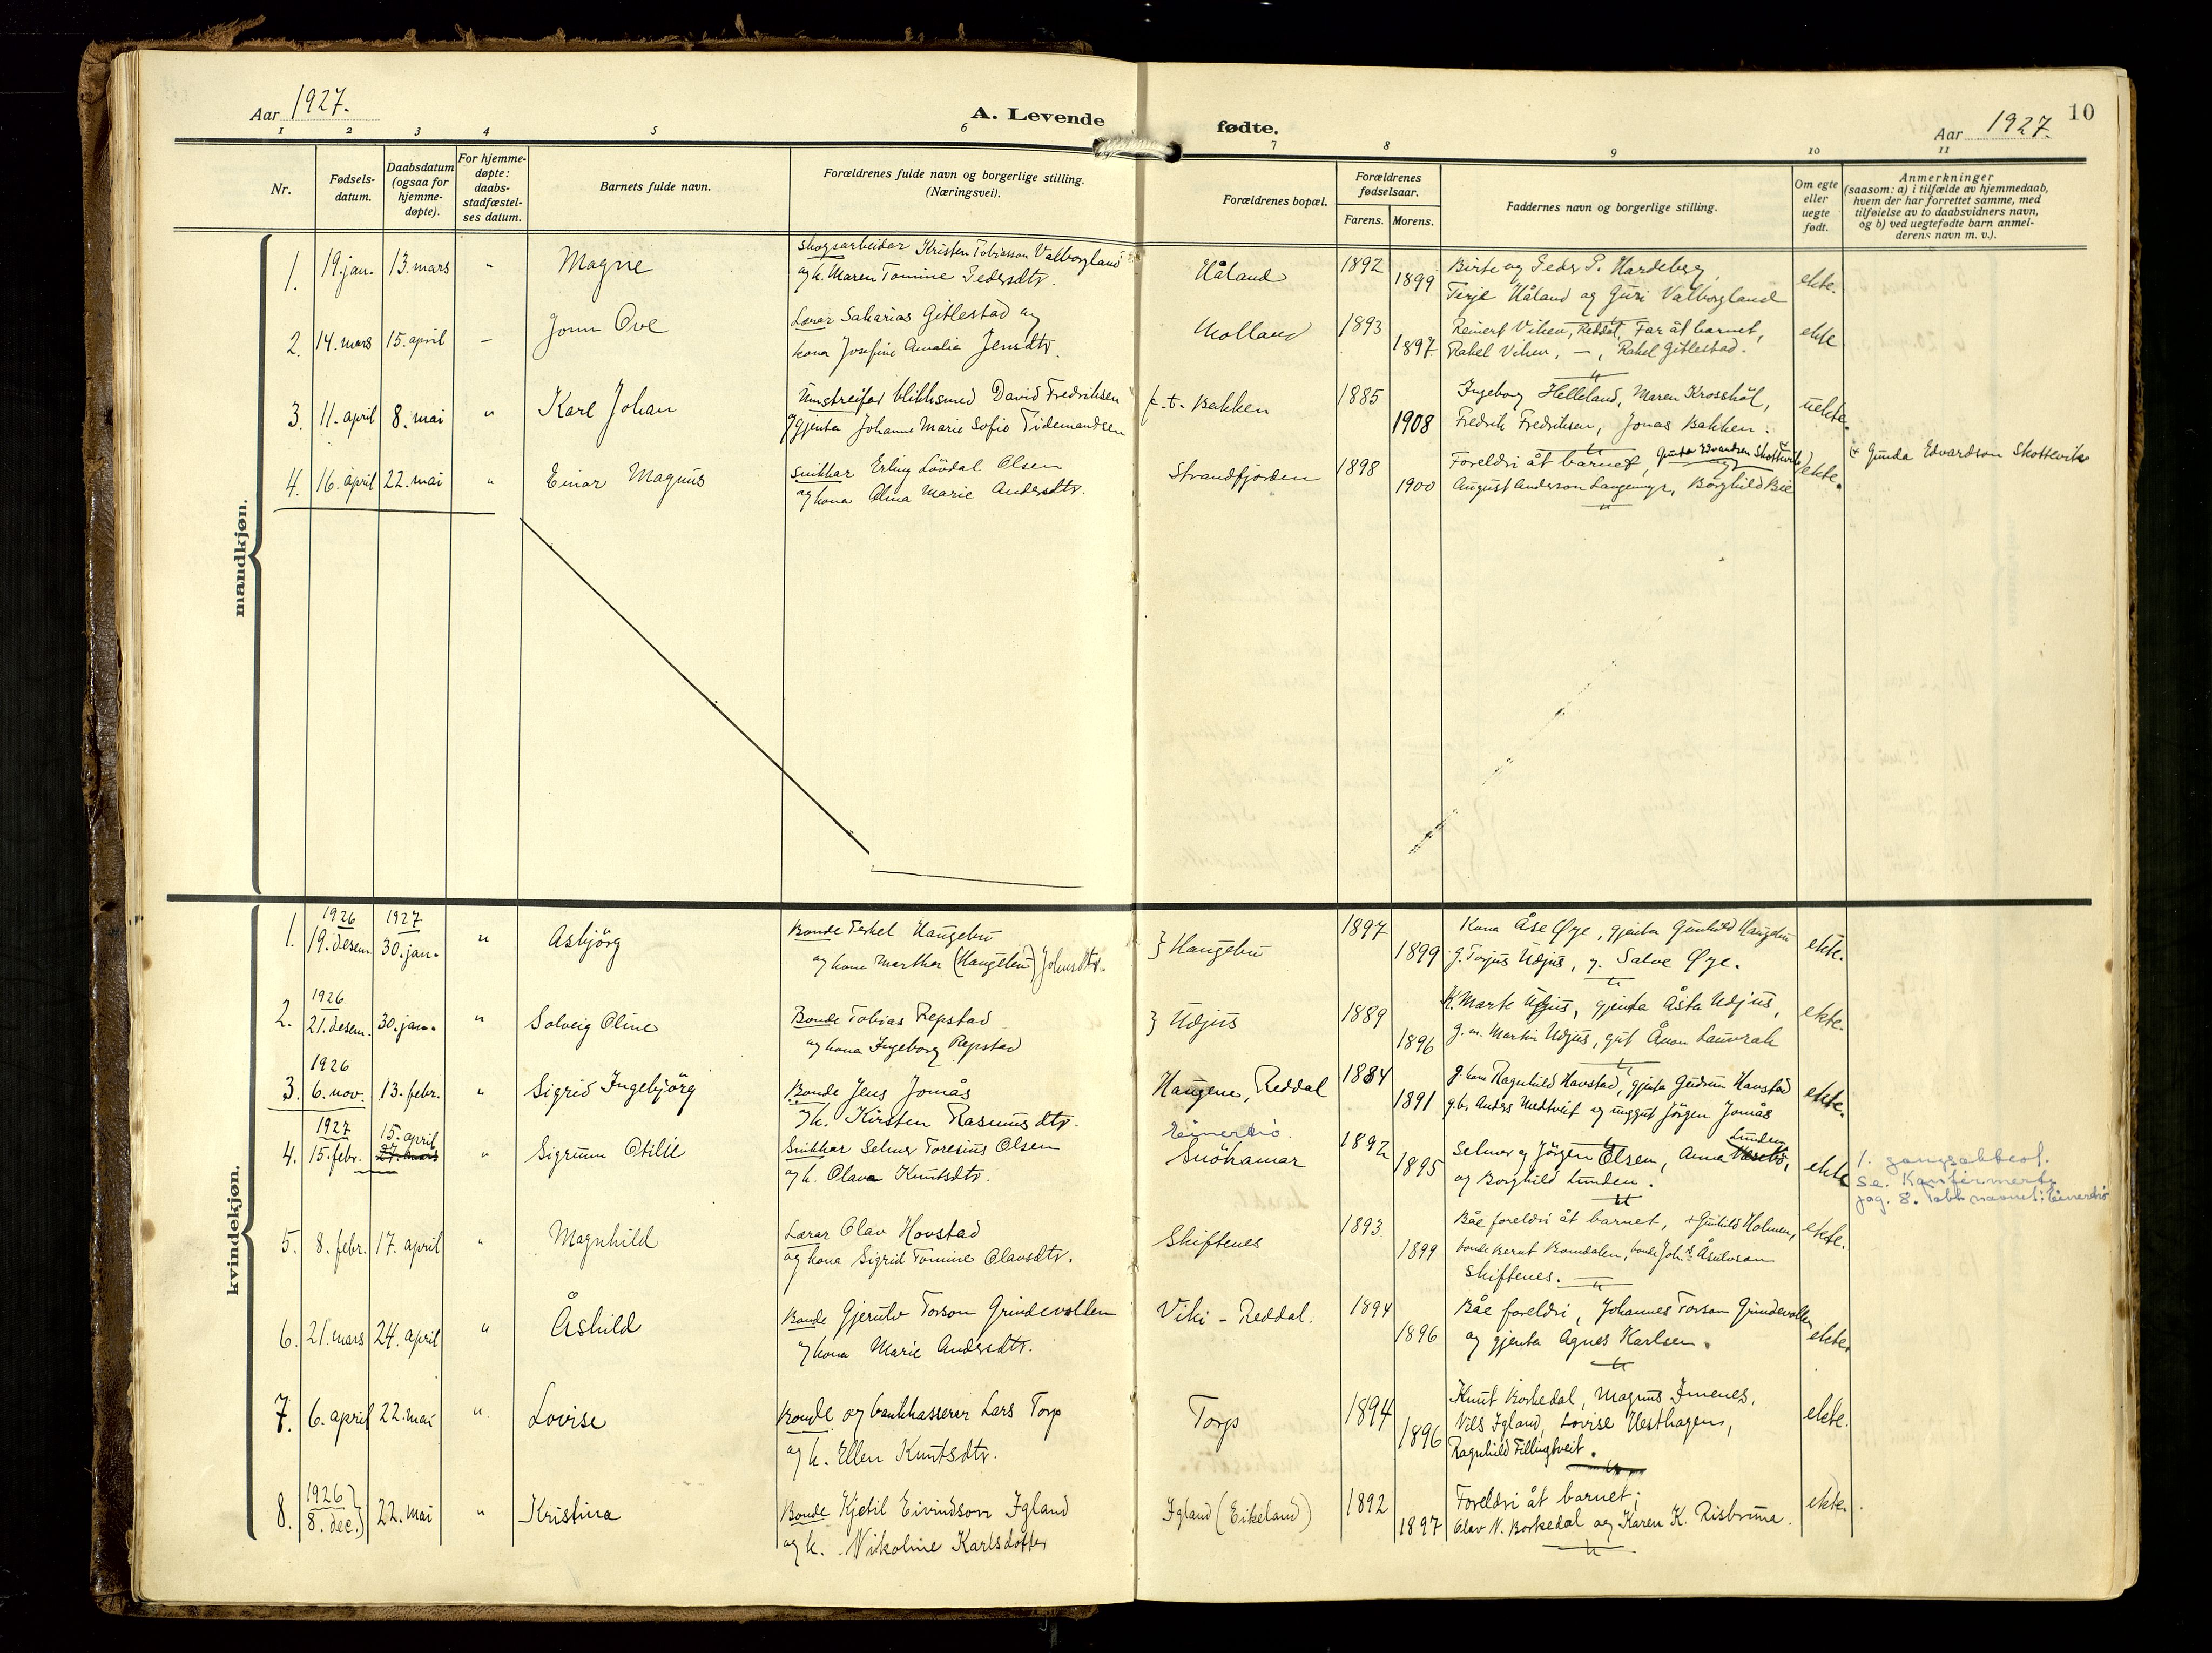 Aar 1927.
A. Levende fødte.
Aar 1927.
10
1 2 3 4 5 6 7 8 9 10 11
Nr.
Fødsels-
datum.
Daabsdatum
(ogsaa for
hjemme-
døpte).
For hjemme-
døpte:
daabs-
stadfæstel-
ses datum.
Barnets fulde navn.
Forældrenes fulde navn og borgerlige stilling.
(Næringsvei).
Forældrenes bopæl.
Forældrenes
fødselsaar.
Farens. Morens.
Faddernes navn og borgerlige stilling.
Om egte
eller
uegte
født.
Anmerkninger
(saasom: a) i tilfælde av hjemmedaab,
hvem der har forrettet samme, med
tilføielse av to daabsvidners navn,
og b) ved uegtefødte barn anmel-
derens navn m. v.).
mandkjøn.
1. 19. jan. 13. mars - Magne
skogsarbeidar Kristen Tobiasson Valborgland
og k. Maren Tomine Pedersdtr.
Håland 1892 1899
Birte og Peder P. Hardeberg,
Terje Håland og Guri Valborgland
ekte.
2. 14. mars 15. april - Jonn Ove
Lærar Sakarias Gitlestad og
kona Josefine Amalie Jensdtr.
Molland 1893 1897
Reinert Viken, Reddal, Far åt barnet,
Rakel Viken, - , Rakel Gitlestad.
ekte
3. 11. april 8. mai " Karl Johan
Umstreifar blikksmed David Fredriksen
og gjenta Johanne Marie Sofie Tidemandsen
p. t. Bakken 1885 1908
Ingeborg Helleland, Maren Krosshöl,
Fredrik Fredriksen, Jonas Bakken.
uekte.
4. 16. april 22. mai " Einar Magnus
snikkar Erling Lövdal Olsen
og kona Alma Marie Andersdtr.
Strandfjorden 1898 1900
Foreldri åt barnet, Gunda Edvardsen Skottevik
August Anderson Langemyr, Borghild Bie
ekte.
Gunda Edvardson Skottevik
kvindekjøn.
1. 1926 19. desem. 1927 30. jan. " Asbjörg
Bonde Terkel Haugebu
og kona Marthea (Haugebu) Johnsdtr.
} Haugebu 1897 1899
Kona Åse Øye, gjenta Gunhild Haugebu
g. Torjus Udjus, g. Salve Øye.
ekte.
2. 1926 21. desem. 30. jan. " Solveig Oline
Bonde Tobias Repstad
og kona Ingeborg Repstad
} Udjus 1889 1896
K. Marte Udjus, gjenta Åsta Udjus,
g. m. Martin Udjus, gut Ånon Lauvrak
ekte.
3. 1926 6. nov. 13. febr. " Sigrid Ingebjörg
Bonde Jens Jomås
og k. Kirsten Rasmusdtr.
Haugene, Reddal 1884 1891
g. kona Ragnhild Havstad, gjenta Gudrun Havstad
g. b. Anders Medtveit og unggut Jörgen Jomås
ekte.
4. 1927 15. febr. 15. april 27. mars " Sigrunn Otilie
Snikkar Selmer Toresius Olsen
og k. Olava Knutsdtr.
Snöhamar 1892 1895
Selmer og Jörgen Olsen, Anna Lunden
og Borghild Lunden.
ekte
1. gangsattest.
Se. Konfirmerte
5. 8. febr. 17. april " Magnhild
Lærar Olav Hovstad
og kona Sigrid Tomine Olavsdtr.
Skiftenes 1893. 1899
Båe foreldri åt barnet, + Gunhild Holmen,
bonde Bernt Romdalen, bonde Joh.s Åsulvson
Skiftenes.
ekte.
6. 21. mars 24. april " Åshild
Bonde Gjerulv Torson Grindevollen
og kona Marie Andersdtr.
Viki - Reddal. 1894 1896
Båe foreldri, Johannes Torson Grindevollen
og gjenta Agnes Karlsen.
ekte.
7. 6. april 22. mai " Lovise
Bonde og bankkasserar Lars Torp
og k. Ellen Knutsdtr.
Torp 1894 1896
Knut Borkedal, Magnus Imenes,
Nils Igland, Lovise Vesthagen,
Ragnhild Fillingtveit.
ekte.
8. 1926 8. dec. } 22. mai " Kristina
Bonde Kjetil Eivindson Igland
og k. Nikoline Karlsdotter
Igland (Eikeland) 1892 1897
Foreldri åt barnet;
Olav N. Borkedal og Karen K. Risbruna.
ekte.